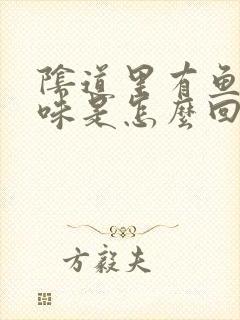 陰道里有鱼
味是怎麼回
方毅夫